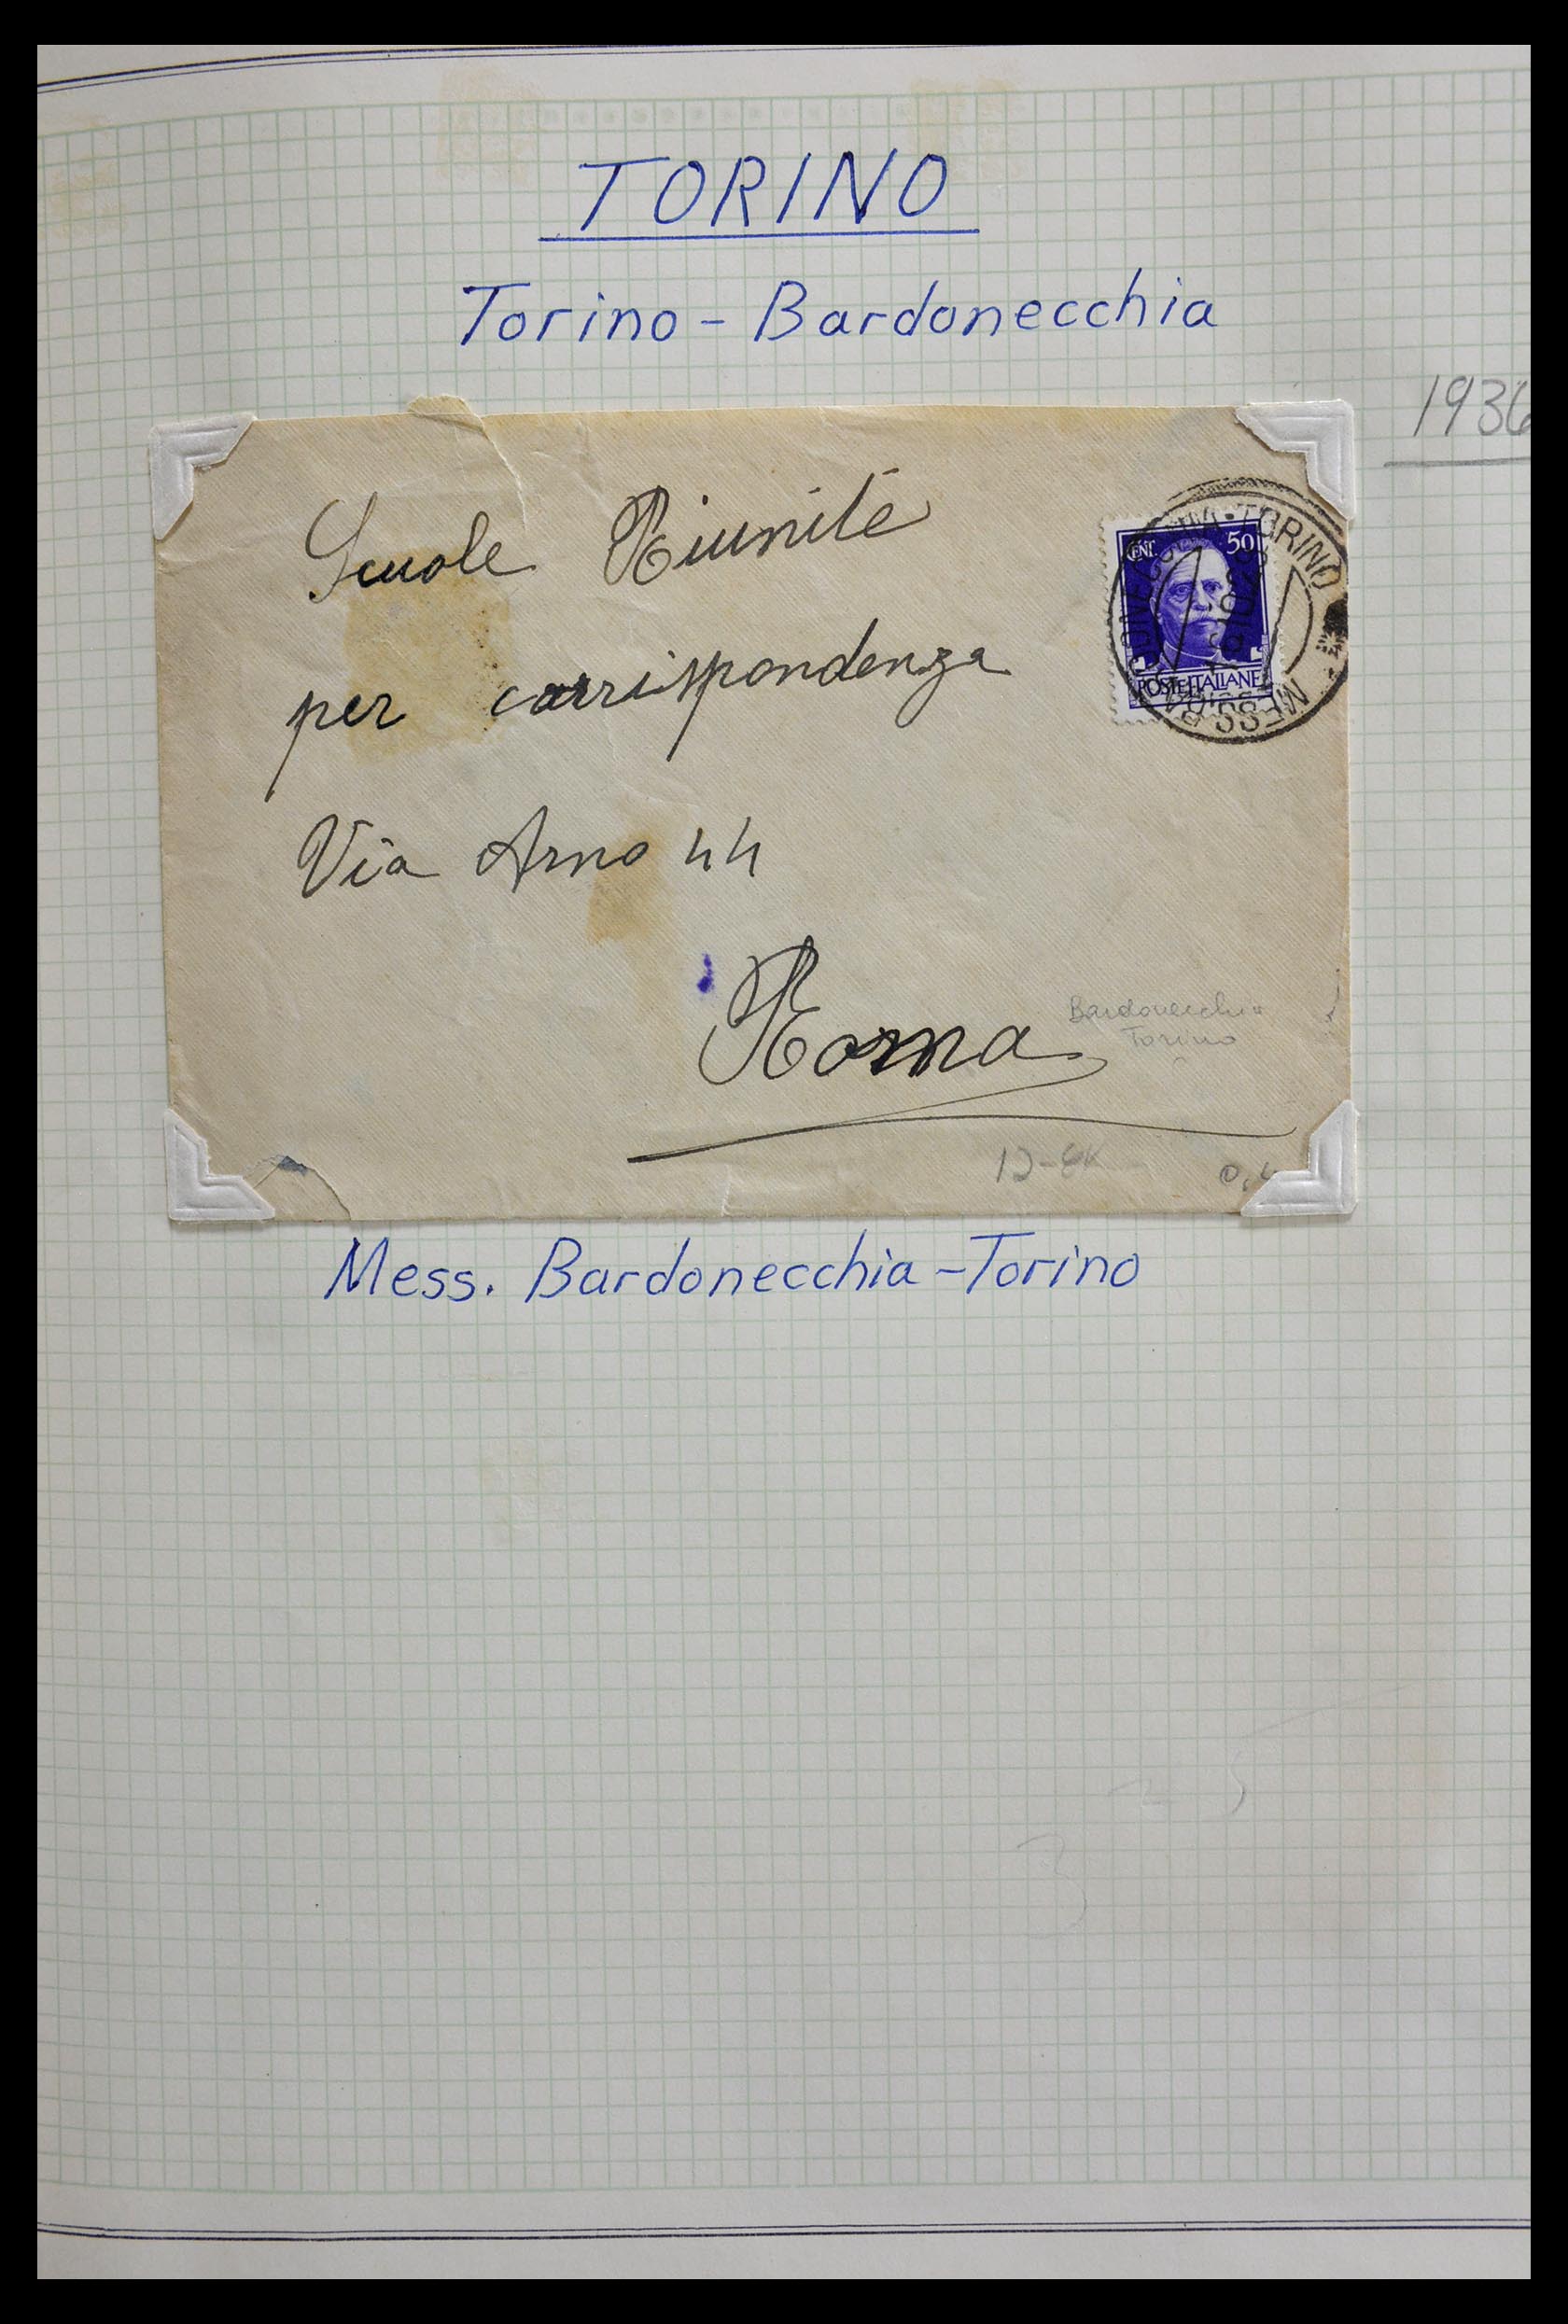 TORINO
Torino - Bardonecchia
1936
Scuole Riunite
per corrispondenza
Via Arno 44
Roma
CENT. 50
POSTE ITALIANE
TORINO
MESS. BA
Bardonecchia
Torino
12-
Mess. Bardonecchia - Torino